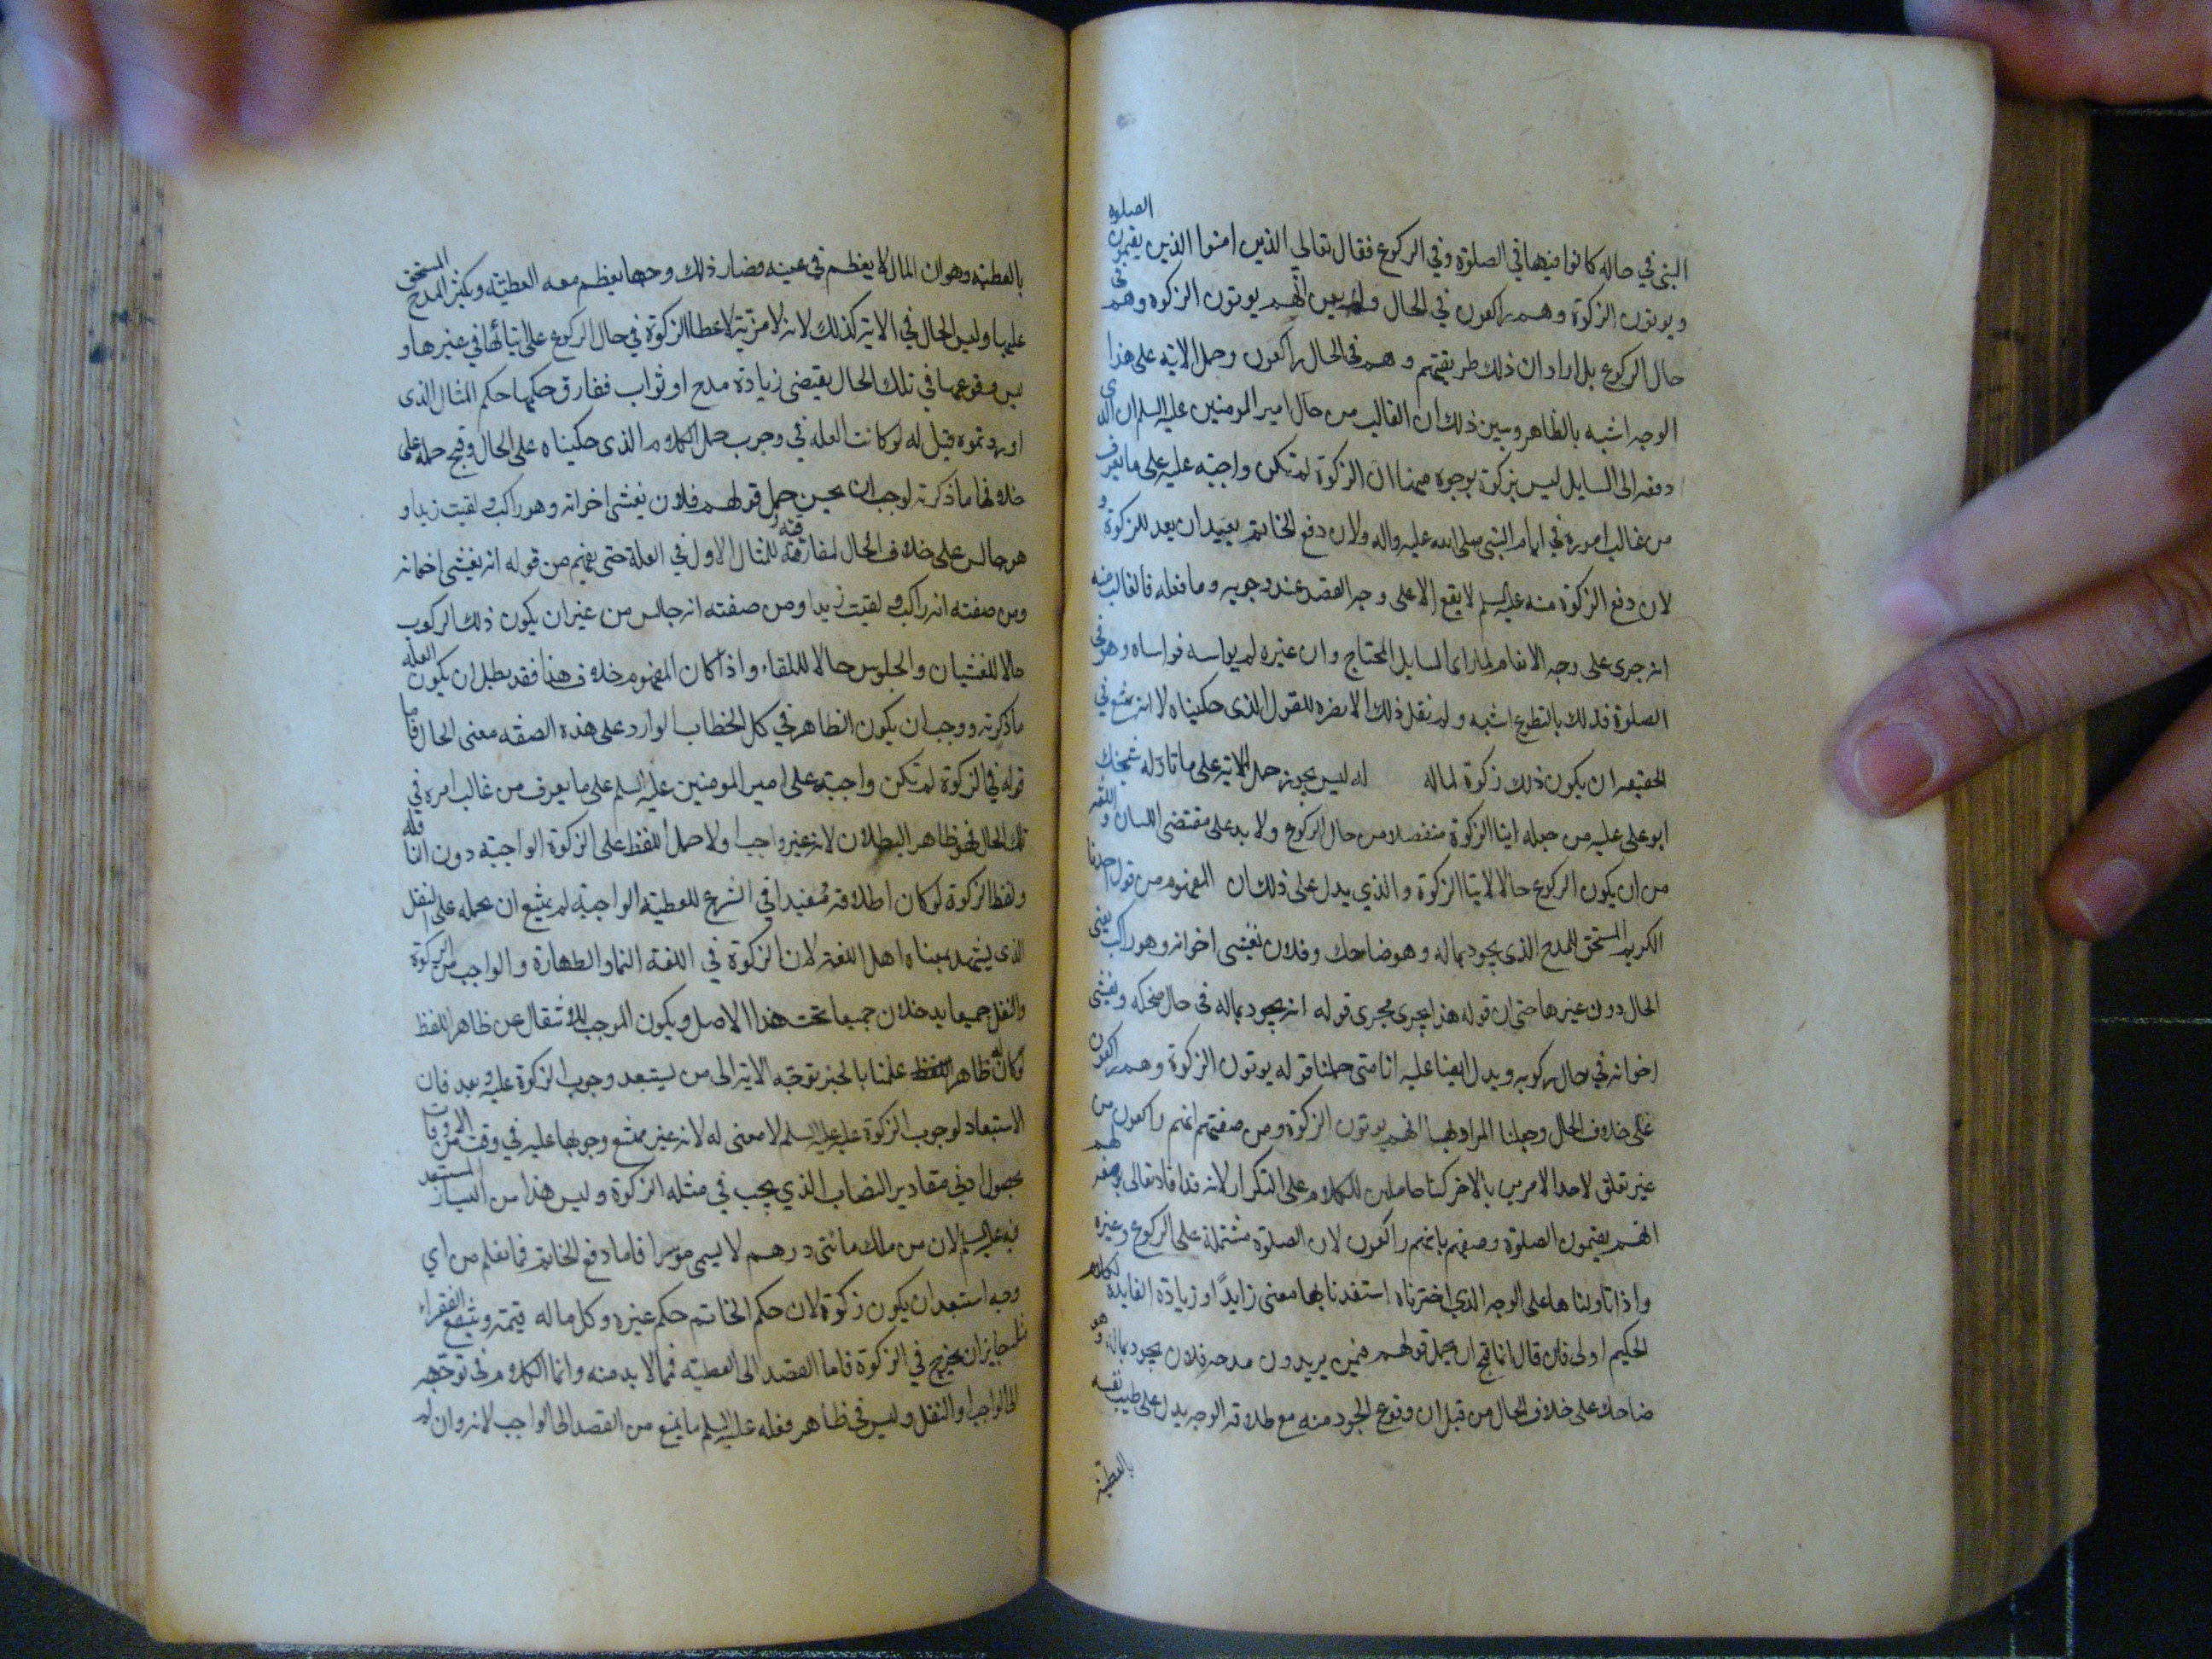 النبي في حاله كانوا فيها في الصلوة وفي الركوع فقال تعالي الذين امنوا الذين يقيمون الصلوة
ويوتون الزكوة وهم راكعون في الحال ولم يعن انهم يوتون الزكوه وهم في
حال الركوع بل اراد ان ذلك طريقتهم وهم في الحال راكعون وحمل الايه على هذا
الوجه اشبه بالظاهر ويبين ذلك ان الغالب من حال امير المومنين عليه السلم ان الذى
دفعه الى السايل ليس بزكوة بوجوه منها ان الزكوة لم تكن واجبة عليه على ما يعرف
من غالب اموره في ايام النبي صلى الله عليه واله ولان دفع الخاتم بعيد ان يعد للزكوة و
لان دفع الزكوة منه عليه السلم لا يقع الا على وجه القصد عند وجوبه وما فعله فالغالب منه
انه جرى على وجه الاتفام لما راى السايل المحتاج وان غيره لم يواسه فواساه وهو في
الصلوة فذلك بالتطوع اشبه ولم نقل ذلك الا نصره للقول الذى حكيناه لا انه يمتنع في
الحقيقه ان يكون ذلك زكوة لماله له ليس يجوز حمل الاية على ما تاوله شيخك
ابو على عليه من جعله ايتا الزكوة منفصلا من حال الركوع ولا بد على مقتضى اللسان واللغه
من ان يكون الركوع حالا لايتا الزكوة والذي يدل على ذلك ان المفهوم من قول احدنا
الكريم المستحق للمدح الذى يجود بماله وهو ضاحك وفلان يغشى اخوانه وهو راكب يعنى
الحال دون غيرها حتى ان قوله هذا يجري مجرى قوله انه يجود بماله فى حال ضحكه ويغشى
اخوانه في حال ركوبه ويدل ايضا عليه انا متى حملنا قوله يوتون الزكوة وهم راكعون
على خلاف الحال وجعلنا المراد بها انهم يوتون الزكوة ومن صفتهم انهم راكعون من
غير تعلق لاحد الامرين بالاخر كنا حاملين للكلام على التكرار لانه قد افاد تعالى بوصفه لهم
انهم يقيمون الصلوة وصفهم بانهم راكعون لان الصلوة مشتملة على الركوع وغيره
واذا تاولناها على الوجه الذي اخترناه استفدنا بها معنى زايدًا وزيادة الفايدة لكلام
الحكيم اولى فان قال انما قبح ان يحمل قولهم فيمن يريدون مدحه فلان يجود بماله وهو
ضاحك على خلاف الحال من قبل ان وقوع الجود منه مع طلاقة الوجه يدل على طيب نفسه
بالعطية
بالعطية وهو ان المال لا يعظم في عينه فصار ذلك وجها يعظم معه العطية ويكثر المدح المستحق
عليها وليس الحال في الاية كذلك لانه لا مزية لاعطا الزكوة في حال الركوع على ايتائها في غيرها و
ليس وقوعها في تلك الحال يقتضى زيادة مدح او ثواب ففارق حكمها حكم المثال الذى
اوردتموه قيل له لو كانت العله في وجوب حمل الكلام الذى حكيناه على الحال وقبح حمله على
خلافها ما ذكرته لوجب ان يحسن حمل قولهم فلان يغشى اخوانه وهو راكب ولقيت زيدا و
هو جالس على خلاف الحال لمفارقته للمثال الاول في العلة حتى يفهم من قوله انه يغشى اخوانه
ومن صفته انه راكب ولقيت زيدا ومن صفته انه جالس من غير ان يكون ذلك الركوب
حالا للغشيان والجلوس حالا للقاء واذا كان المفهوم خلاف هذا فقد بطل ان يكون العله
ما ذكرته ووجب ان يكون الظاهر في كل الخطاب الوارد على هذه الصفه معنى الحال فاما
قوله في الزكوة لم تكن واجبة على امير المومنين عليه السلم على ما يعرف من غالب امره في
تلك الحال فهو ظاهر البطلان لانه غير واجب اولا حمل اللفظ على الزكوة الواجبة دون النافله
ولفظ الزكوة لو كان اطلاقه مفيدا في الشرع للعطية الواجبة لم يمتنع ان يحمله على النفل
الذى يشهد بمعناه اهل اللغة لان الزكوة في اللغة النما والطهارة والواجب من الزكوة
والنفل جميعا يدخلان جميعا تحت هذا الاصل ويكون الموجب للانتقال عن ظاهر اللفظ
لو كان له ظاهر علمنا بالخبر توجه الاية الى من يستبعد وجوب الزكوة عليه وبعد فان
الاستبعاد لوجوب الزكوة عليه عليه السلم لا معنى له لانه غير ممتنع وجوبها عليه في وقت من الاوقات
بحصول ادنى مقادير النصاب الذي يجب في مثله الزكوة وليس هذا من اليسار المستبعد
فيه عليه السلم لان من ملك مائتى درهم لا يسمى موسرا فاما دفع الخاتم فما نعلم من اي
وجه استبعد ان يكون زكوة لان حكم الخاتم حكم غيره وكل ما له قيمة وينتفع الفقراء
بمثله جايز ان يخرج في الزكوة فاما القصد الى العطية فمما لا بد منه وانما الكلام فى توجهه
الى الواجب او النفل وليس في ظاهر فعله عليه السلم ما يمنع من القصد الى الواجب لانه وان لم